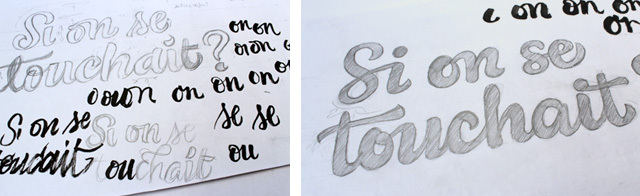 Si on se
touchait ?
on on
oron on
oown on on on on
Si on se
Si on se
se se
touchait
ou chait
ou
on on on
on
Si on se
touchait